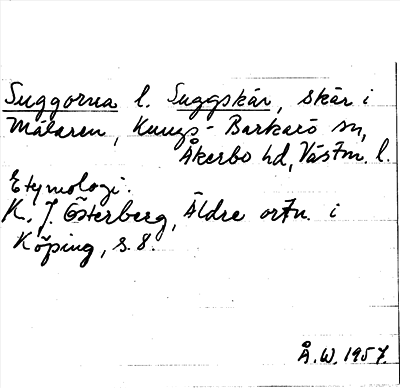 Suggorna l. Suggskär, skär i
Mälaren, Kungs-Barkarö sn,
Åkerbo hd, Västm. l.
Etymologi.
K. J. Österberg, Äldre ortn. i
Köping, s. 8.
Å. W. 1957.